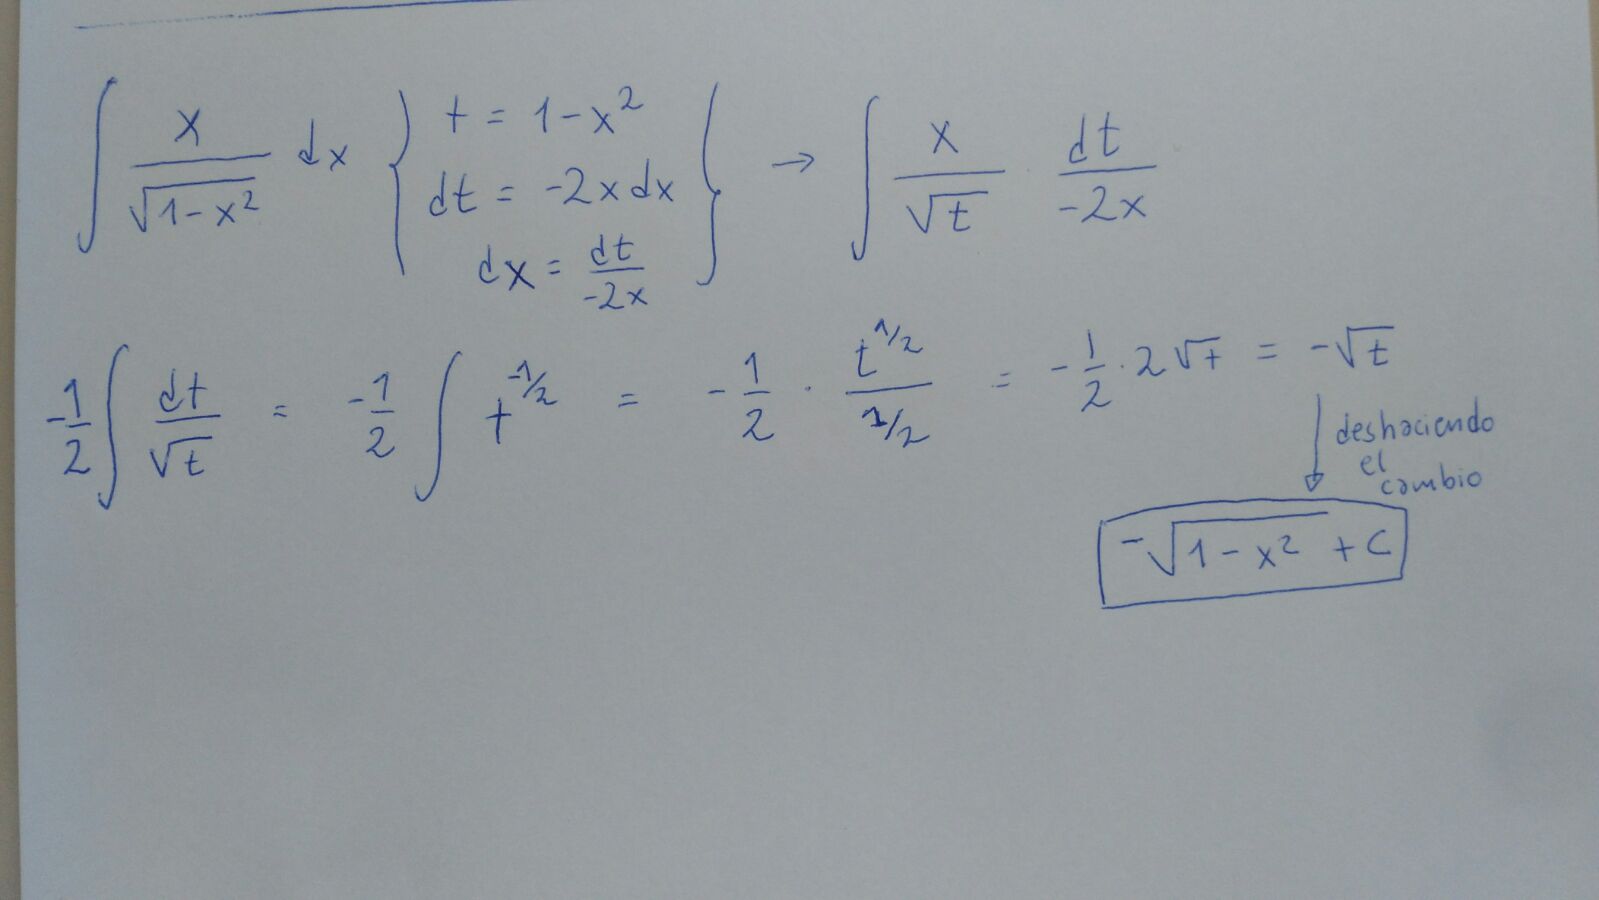 ∫ x/√(1-x²) dx { t = 1-x² } → ∫ x/√t · dt/-2x
dt = -2x dx
dx = dt/-2x
-1/2 ∫ dt/√t = -1/2 ∫ t^(-1/2) = -1/2 · t^(1/2)/(1/2) = -1/2 · 2√t = -√t
deshaciendo
el
cambio
-√(1-x²) + C